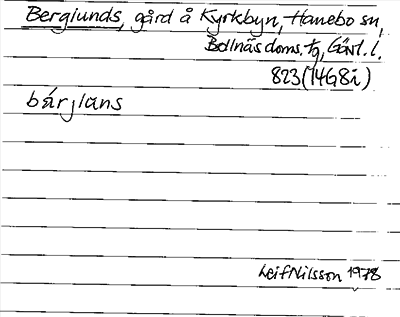 Berglunds, gård å Kyrkbyn, Hanebo sn,
Bollnäs doms. tg, Gävl. l.
823 (14G8i)
bárjluns
Leif Nilsson 1978